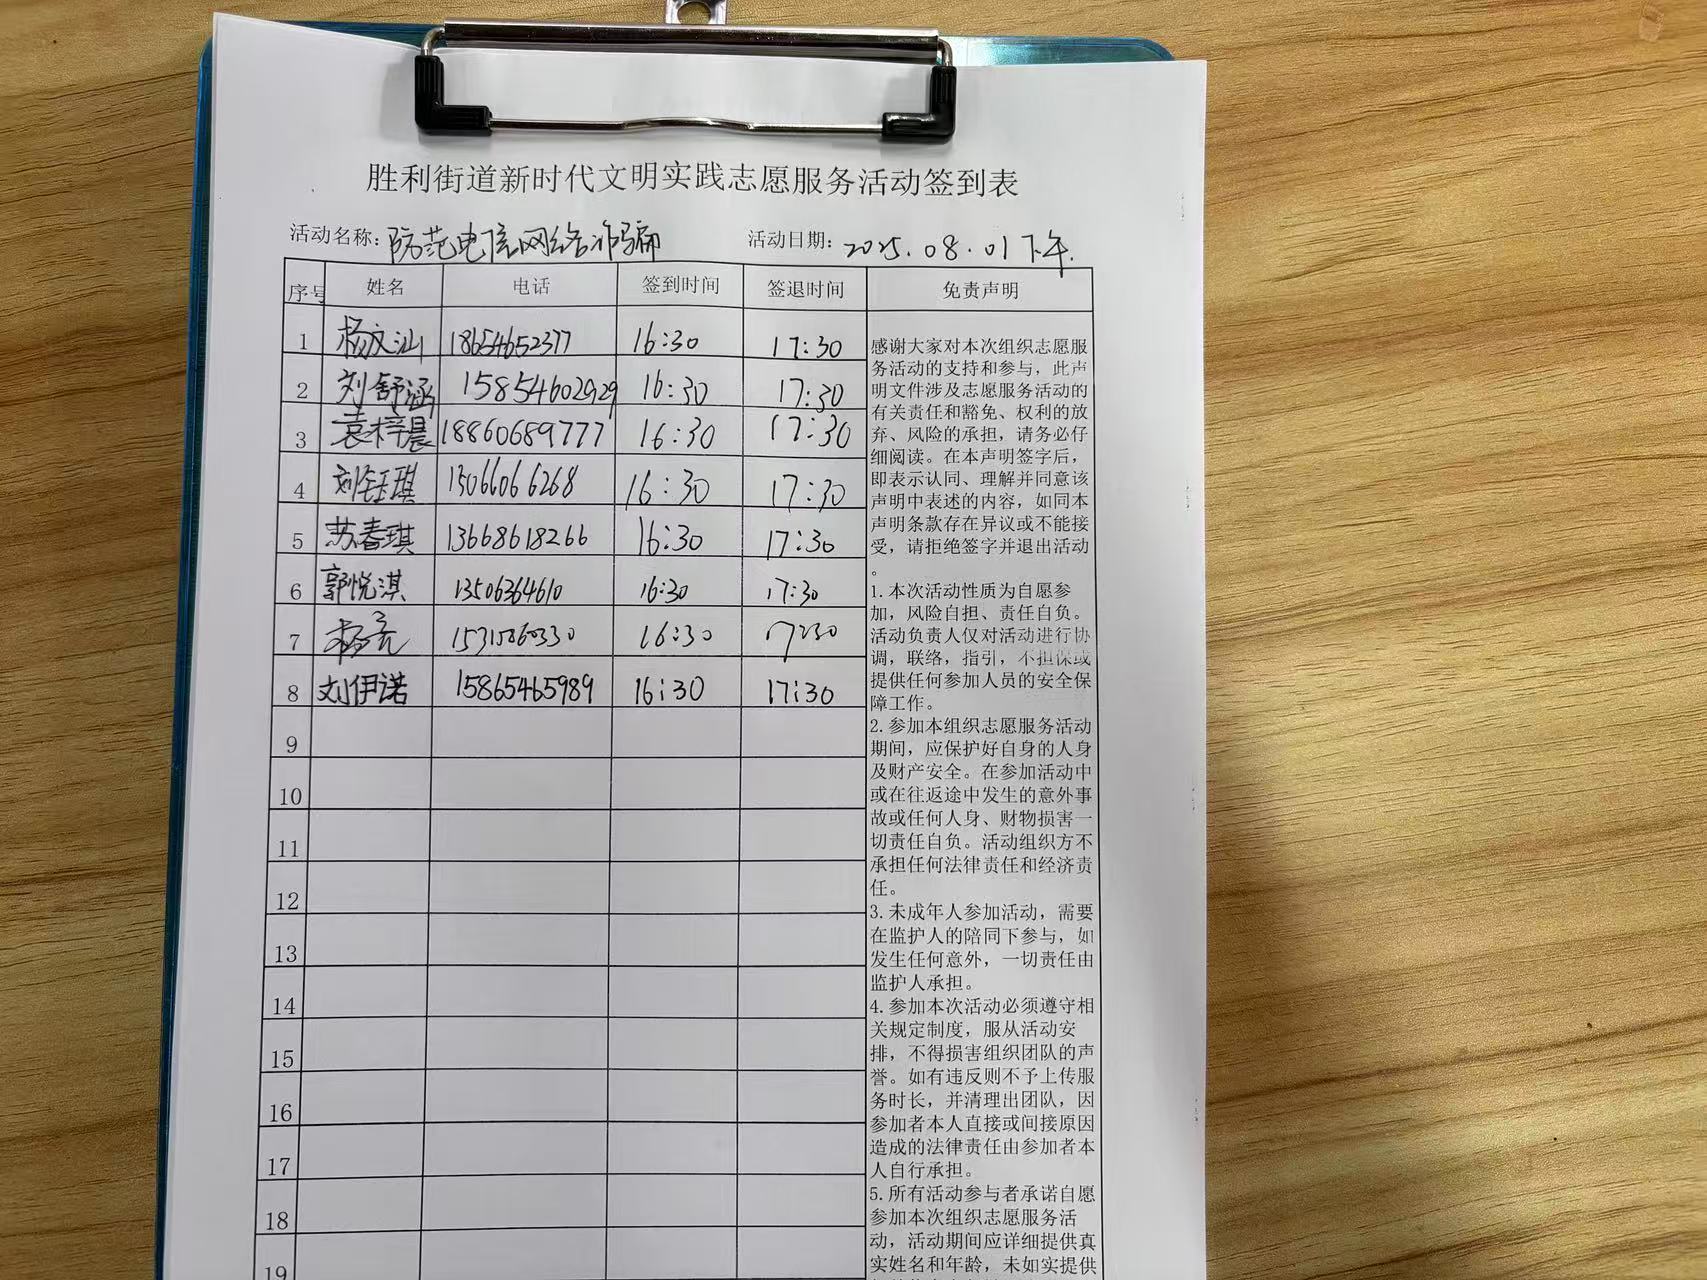 胜利街道新时代文明实践志愿服务活动签到表
活动名称：防范电信网络诈骗 活动日期：2025.08.01下午.
序号 姓名 电话 签到时间 签退时间 免责声明
1 杨文汕 18654652377 16:30 17:30
2 刘舒涵 15854602929 16:30 17:30
3 袁梓晨 18860689777 16:30 17:30
4 刘钰琪 15066066268 16:30 17:30
5 苏春琪 13668618266 16:30 17:30
6 郭悦淇 13506364610 16:30 17:30
7 杨亮 15315860330 16:30 17:30
8 刘伊诺 15865465989 16:30 17:30
9
10
11
12
13
14
15
16
17
18
19
感谢大家对本次组织志愿服
务活动的支持和参与，此声
明文件涉及志愿服务活动的
有关责任和豁免、权利的放
弃、风险的承担，请务必仔
细阅读。在本声明签字后，
即表示认同、理解并同意该
声明中表述的内容，如同本
声明条款存在异议或不能接
受，请拒绝签字并退出活动
。
1.本次活动性质为自愿参
加，风险自担、责任自负。
活动负责人仅对活动进行协
调，联络，指引，不担保或
提供任何参加人员的安全保
障工作。
2.参加本组织志愿服务活动
期间，应保护好自身的人身
及财产安全。在参加活动中
或在往返途中发生的意外事
故或任何人身、财物损害一
切责任自负。活动组织方不
承担任何法律责任和经济责
任。
3.未成年人参加活动，需要
在监护人的陪同下参与，如
发生任何意外，一切责任由
监护人承担。
4.参加本次活动必须遵守相
关规定制度，服从活动安
排，不得损害组织团队的声
誉。如有违反则不予上传服
务时长，并清理出团队，因
参加者本人直接或间接原因
造成的法律责任由参加者本
人自行承担。
5.所有活动参与者承诺自愿
参加本次组织志愿服务活
动，活动期间应详细提供真
实姓名和年龄，未如实提供